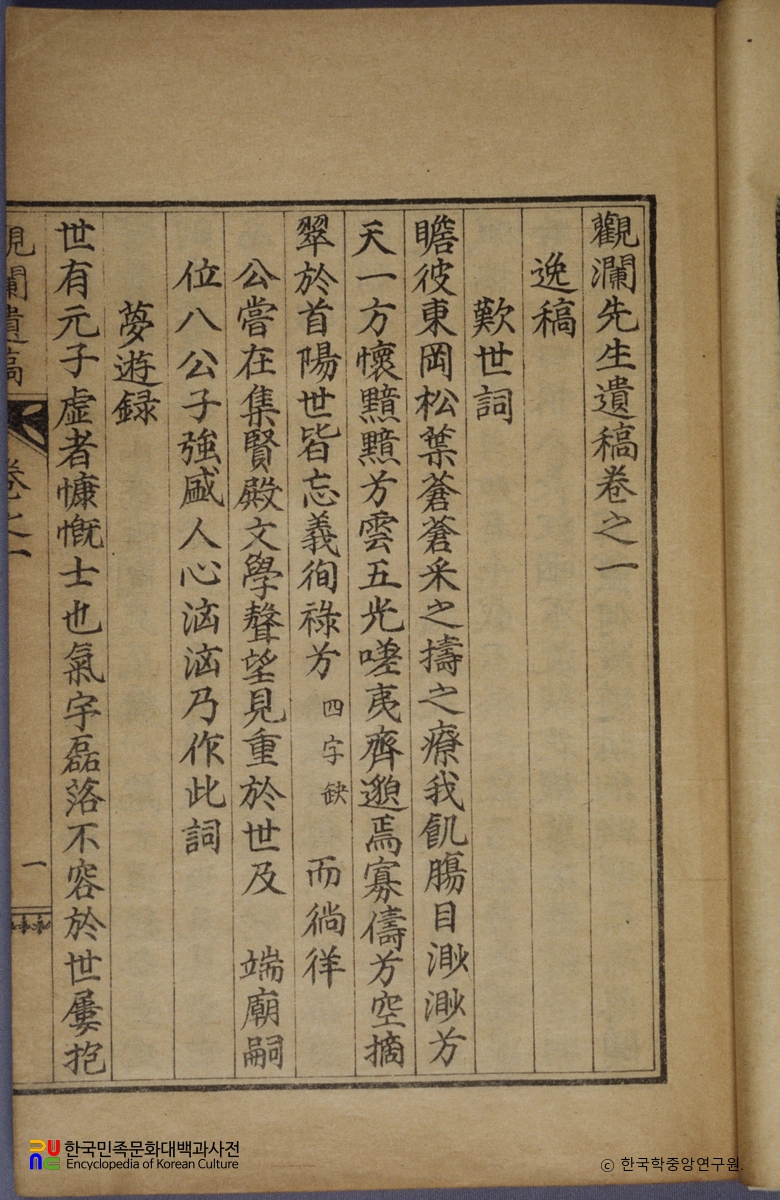 觀瀾先生遺稿卷之一
逸稿
歎世詞
瞻彼東岡松葉蒼蒼采之擣之療我飢膓目渺渺兮
天一方懷黯黯兮雲五光嗟夷齊邈焉寡儔兮空摘
翠於首陽世皆忘義徇祿兮 四字缺 而徜徉
公嘗在集賢殿文學聲望見重於世及 端廟嗣
位八公子強盛人心洶洶乃作此詞
夢遊録
世有元子虛者慷慨士也氣宇磊落不容於世屢抱
觀瀾遺稿 卷之一 一
한국민족문화대백과사전
Encyclopedia of Korean Culture
ⓒ 한국학중앙연구원.